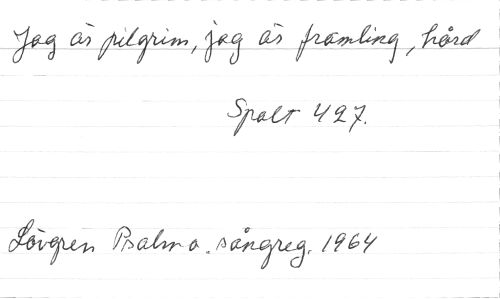 Jag är pilgrim, jag är främling, hård
Spalt 427.
Lövgren Psalm o. sångreg. 1964